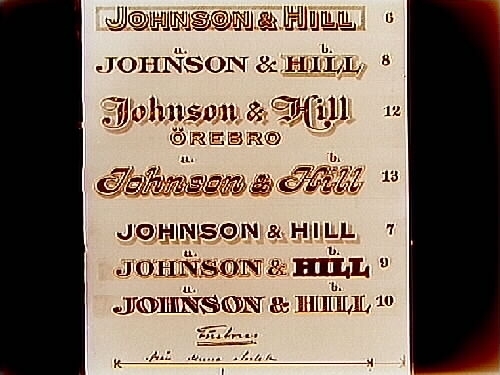 JOHNSON & HILL 6
a. b.
JOHNSON & HILL 8
Johnson & Hill 12
ÖREBRO
a. b.
Johnson & Hill 13
JOHNSON & HILL 7
a. b.
JOHNSON & HILL 9
a. b.
JOHNSON & HILL 10